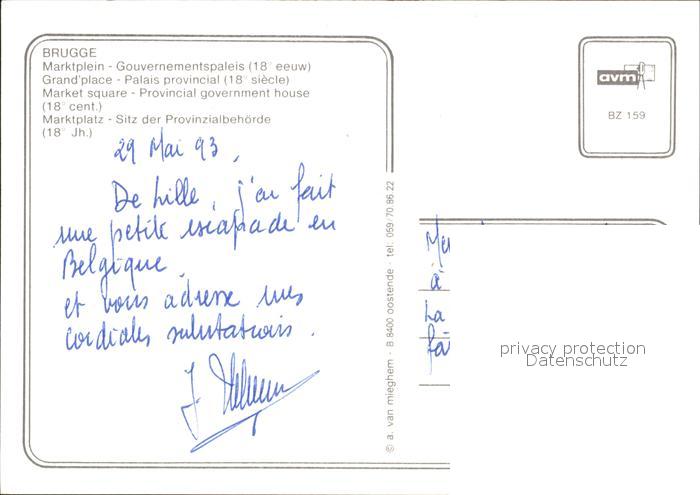 BRUGGE
Marktplein - Gouvernementspaleis (18° eeuw)
Grand'place - Palais provincial (18° siècle)
Market square - Provincial government house
(18° cent.)
Marktplatz - Sitz der Provinzialbehörde
(18° Jh.)
29 Mai 93,
De Lille, j'ai fait
une petite escapade en
Belgique,
et vous adresse mes
cordiales salutations.
J.
© a. van mieghem - B 8400 oostende - tel.: 059/70 86 22
avm
BZ 159
à
La
privacy protection
Datenschutz